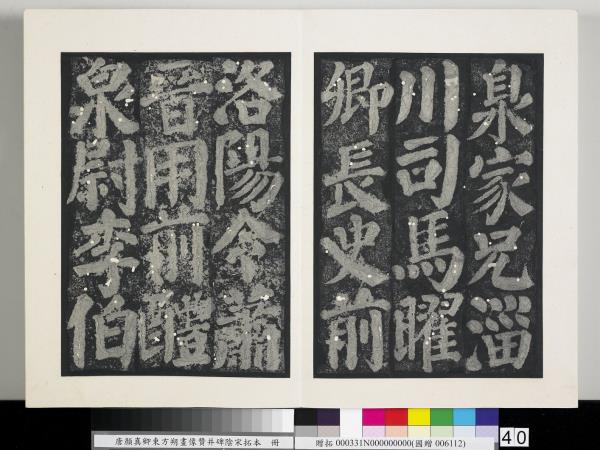 臮家兄淄
川司馬曜
卿長史前
洛陽令蕭
晉用前醴
泉尉李伯
唐顏真卿東方朔畫像贊并碑陰宋拓本 冊
贈拓 000331N000000000(國贈 006112)
40